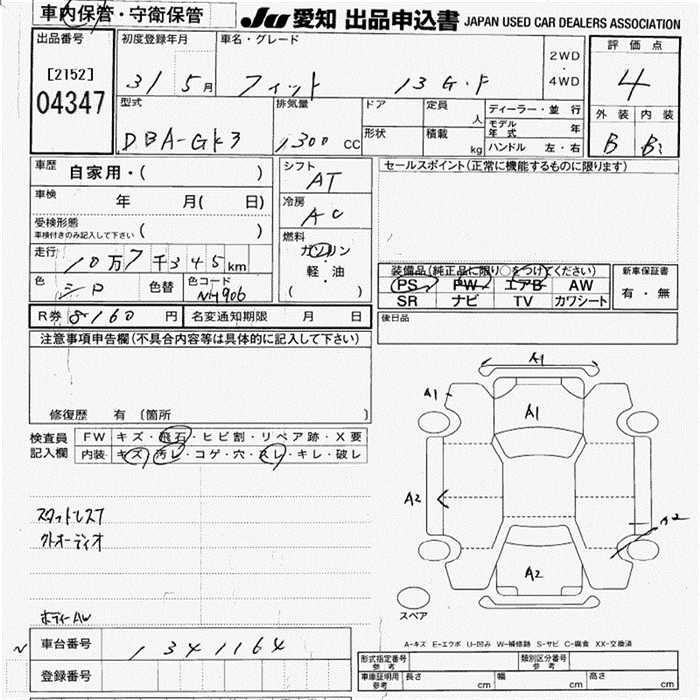 車内保管・守衛保管
JU 愛知 出品申込書 JAPAN USED CAR DEALERS ASSOCIATION
出品番号
[2152]
04347
初度登録年月
31 5月
車名・グレード
フィット 13G・F
2WD
4WD
評価点
4
外装 内装
B B
型式
DBA-GK3
排気量
1300 CC
ドア
形状
定員 人
積載 kg
ディーラー・並行
モデル年式 年
ハンドル 左・右
車歴 自家用・( )
車検 年 月( 日)
受検形態
車検付きのみ記入して下さい ( )
走行 10万7千345km
色 シロ 色替 色コード NH906
シフト
AT
冷房
AC
燃料
ガソリン
軽・油
( )
セールスポイント(正常に機能するものに限ります)
装備品(純正品に限り○をつけてください)
PS PW エアB AW
SR ナビ TV カワシート
新車保証書
有・無
R券 8160 円 名変通知期限 月 日
後日品
注意事項申告欄(不具合内容等は具体的に記入して下さい)
修復歴 有 〔箇所 〕
検査員記入欄
FW キズ・飛石・ヒビ割・リペア跡・X要
内装 キズ・汚レ・コゲ・穴・スレ・キレ・破レ
スタットレス7
クトオーディオ
ボディーAW
A1
A1
A1
A2
A2
A2
スペア
A-キズ E-エクボ U-凹み W-補修跡 S-サビ C-腐食 XX-交換済
車台番号 1341164
登録番号
形式指定番号 参考
類別区分番号 参考
車庫証明用 参考 長さ cm 幅 cm 高さ cm